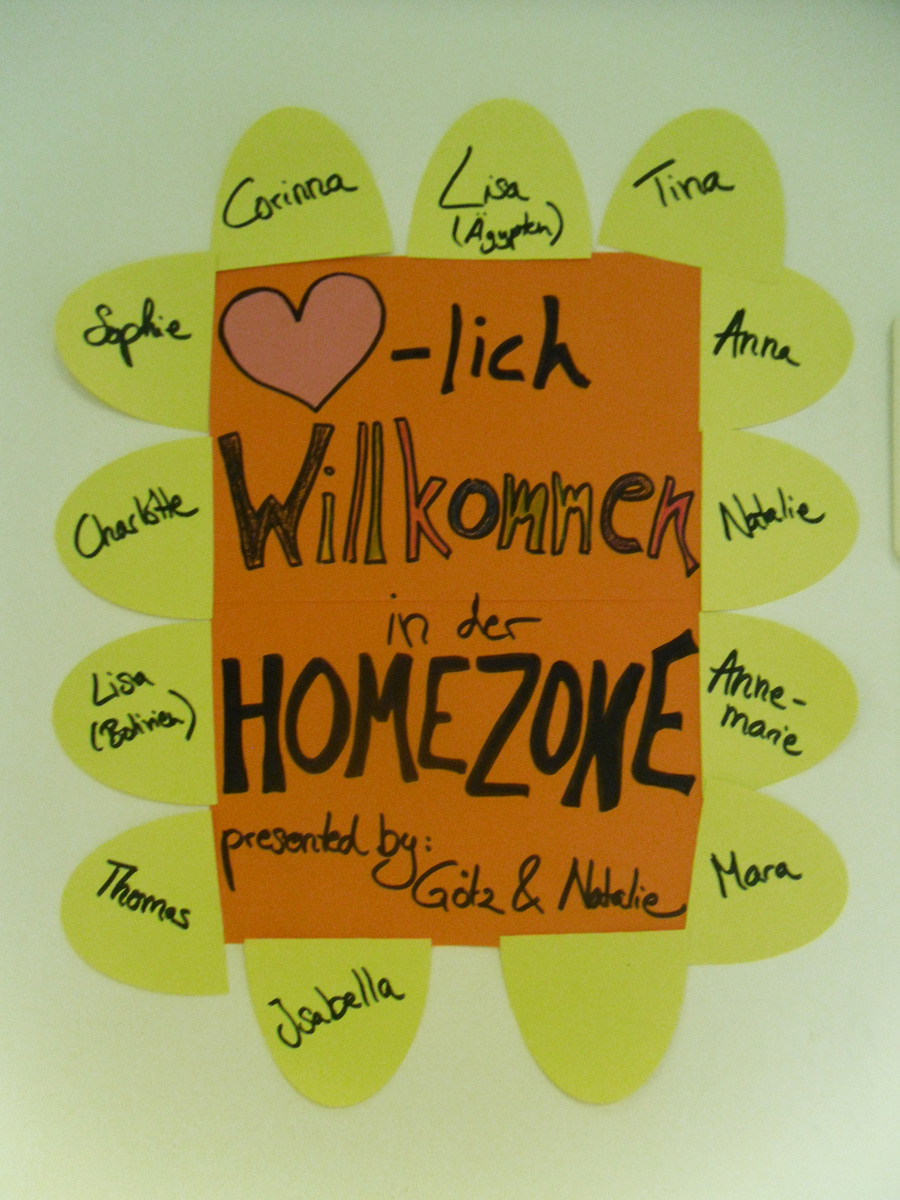 Corinna
Lisa
(Ägypten)
Tina
Sophie
Anna
Charlotte
Natalie
Lisa
(Bolivien)
Anne-
marie
Thomas
Mara
Isabella
-lich
Willkommen
in der
HOMEZONE
presented by:
Götz & Natalie